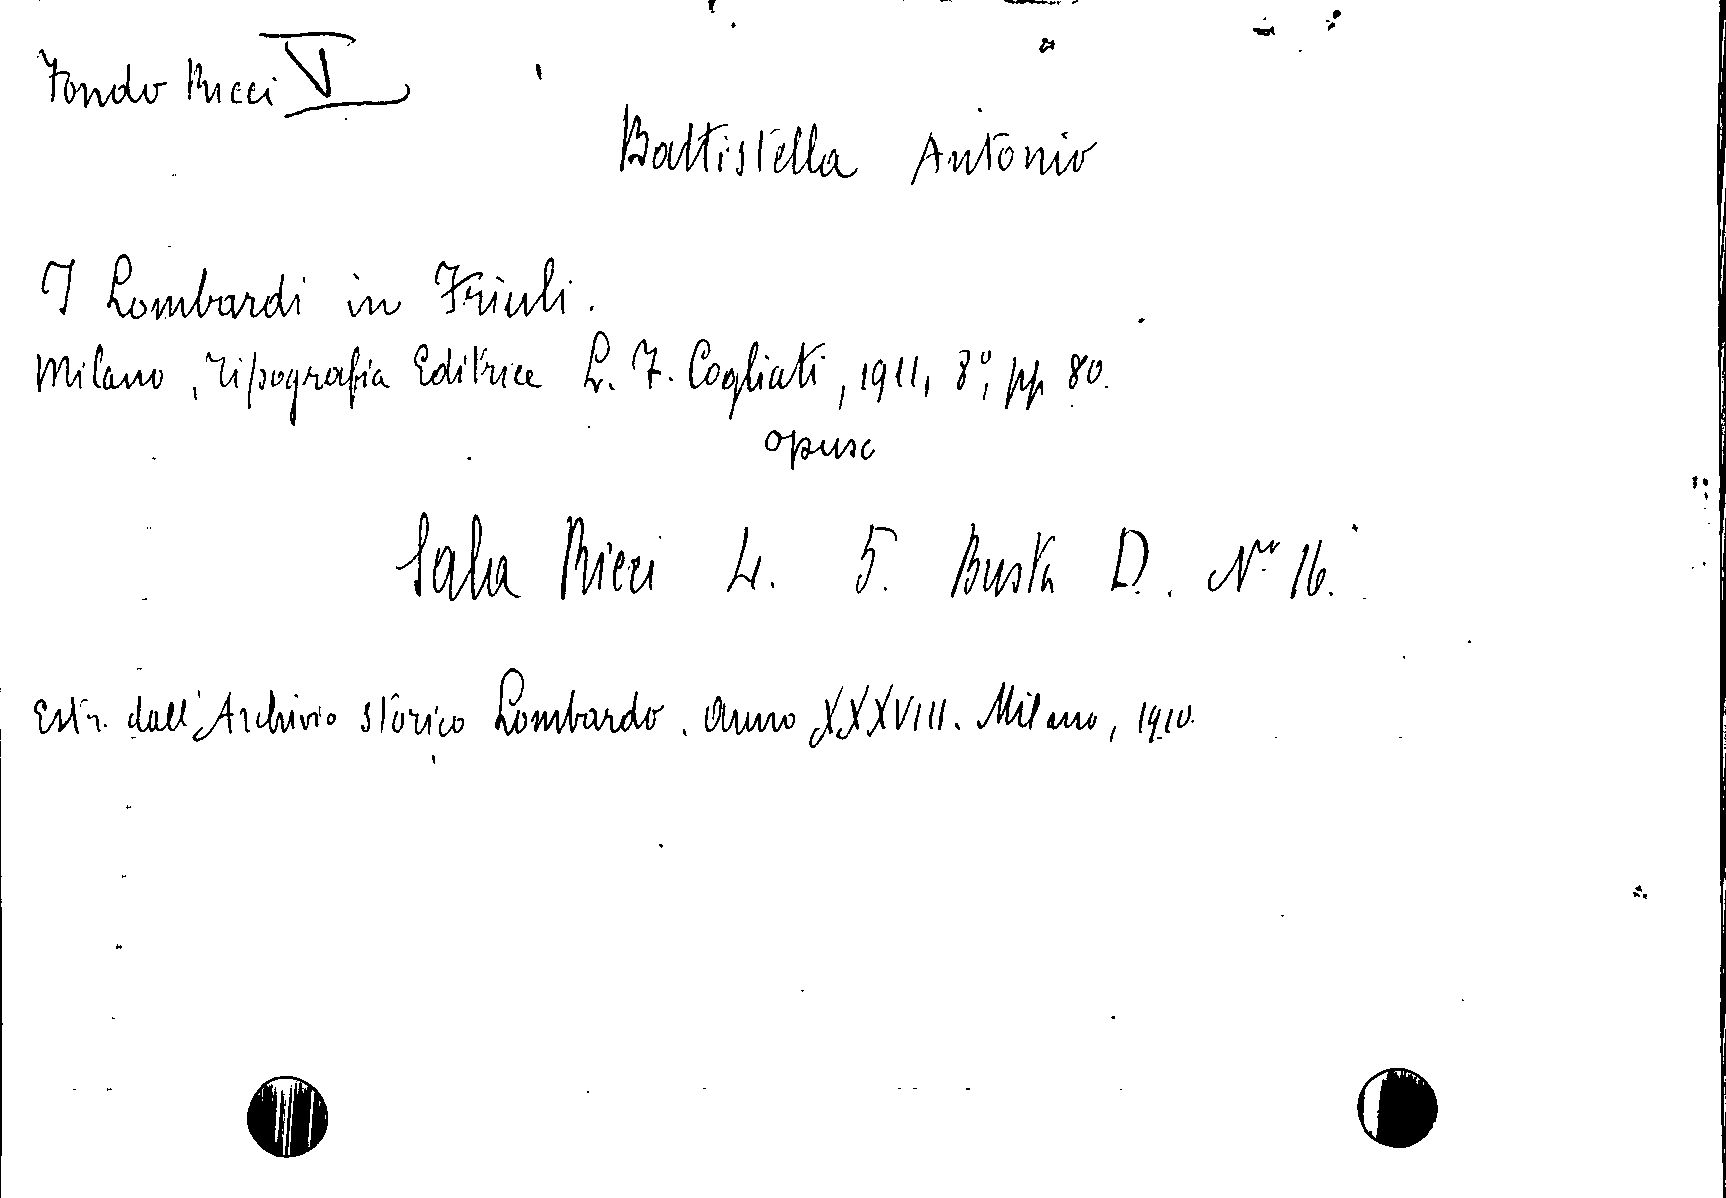 Fondo Ricci V
Battistella Antonio
I Lombardi in Friuli.
Milano, Tipografia Editrice L. F. Cogliati, 1911, 8°, pp 80.
opusc
Sala Ricci L. 5. Busta D. N° 16.
Estr. dall'Archivio storico Lombardo. Anno XXXVIII. Milano, 1910.